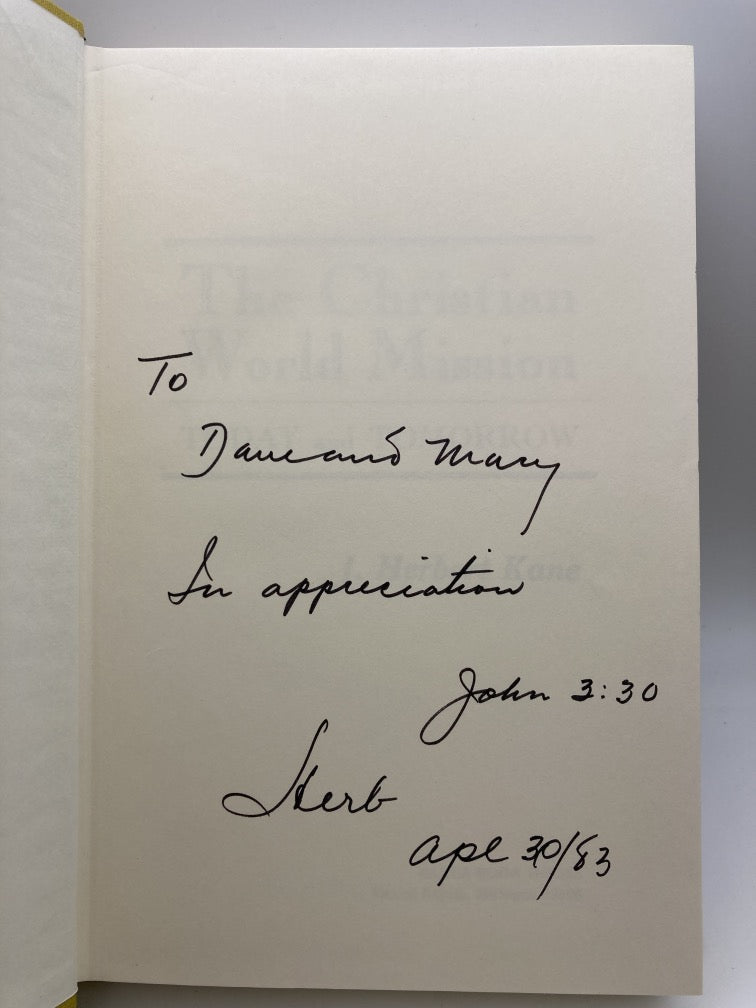 To
Dave and Mary
In appreciation
John 3:30
Herb
Apl 30/83
The Christian
World Mission
TODAY and TOMORROW
J. Herbert Kane